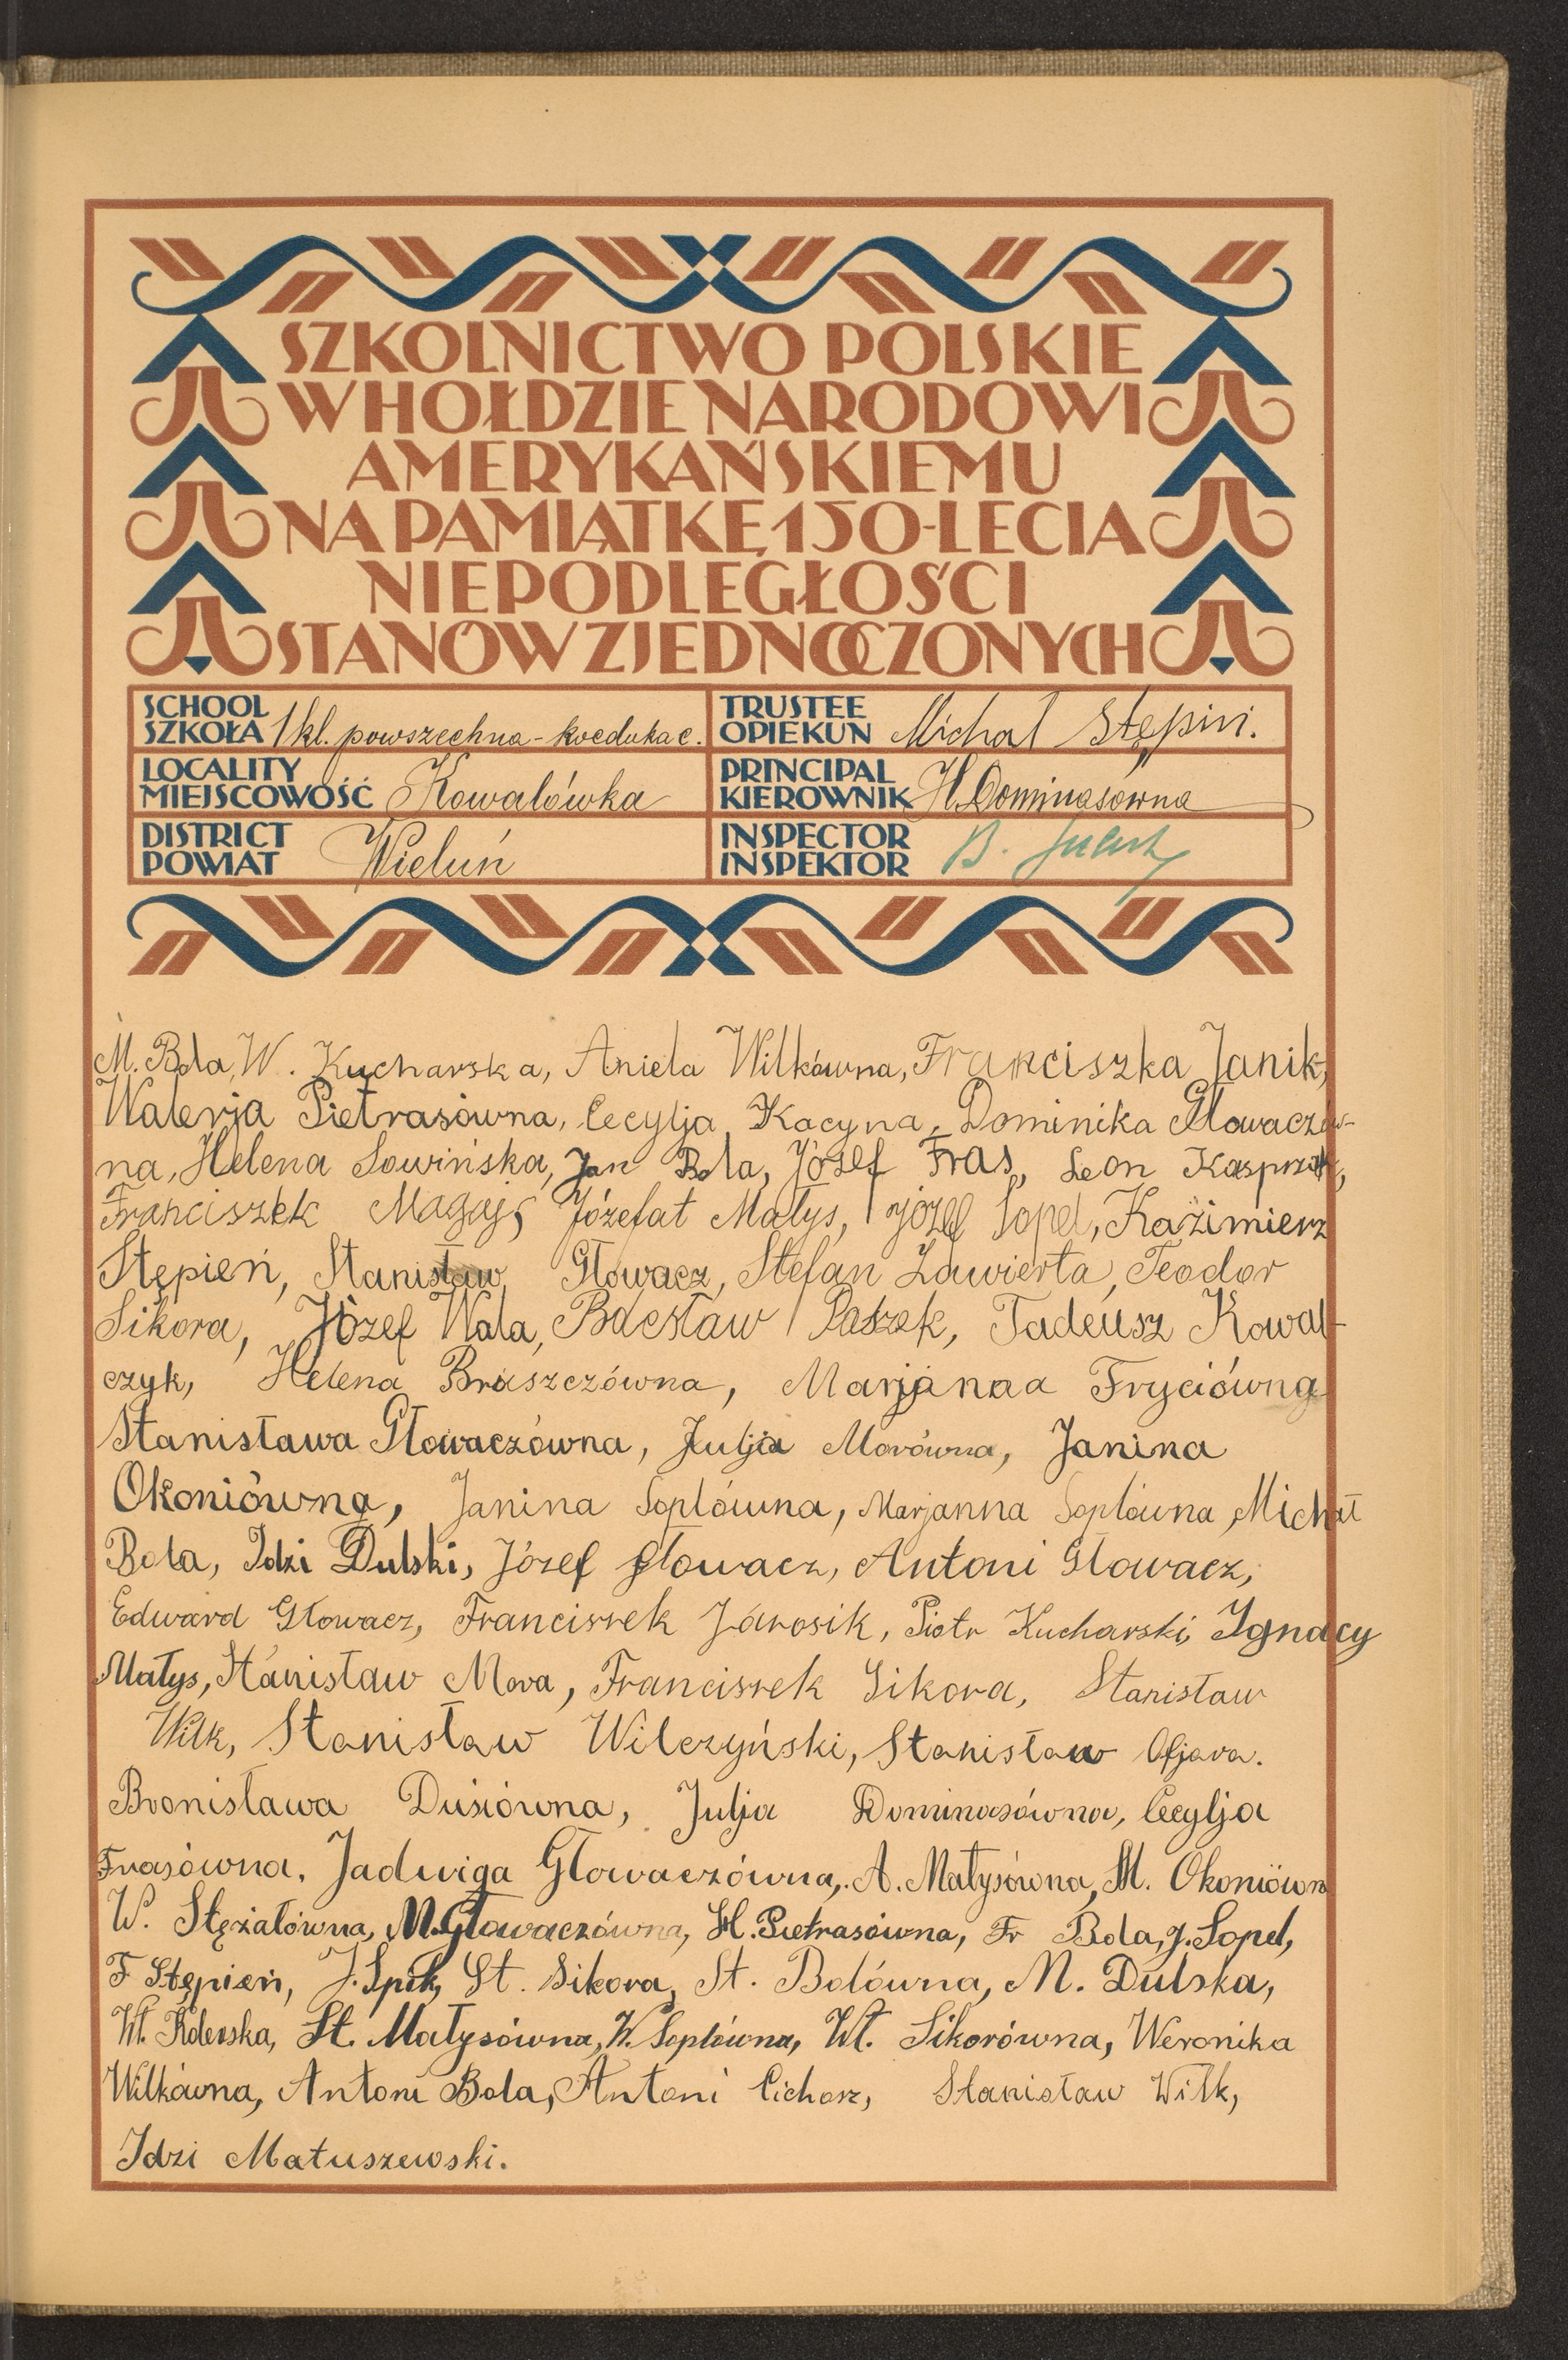 SZKOLNICTWO POLSKIE
W HOŁDZIE NARODOWI
AMERYKAŃSKIEMU
NA PAMIĄTKĘ 150-LECIA
NIEPODLEGŁOŚCI
STANÓW ZJEDNOCZONYCH
SCHOOL
SZKOŁA 1 kl. powszechna - koedukac.
TRUSTEE
OPIEKUN Michał Stępiń.
LOCALITY
MIEJSCOWOŚĆ Kowalówka
PRINCIPAL
KIEROWNIK H. Dominasówna
DISTRICT
POWIAT Wieluń
INSPECTOR
INSPEKTOR B.
M. Bola, W. Kucharska, Aniela Wilkówna, Franciszka Janik,
Walerja Pietrasówna, Cecylja Kacyna, Dominika Głowaczów-
na, Helena Sowińska, Jan Bola, Józef Fras, Leon Kasprzak,
Franciszek Magaj, Józefat Małys, józef Sopel, Kaźimierz
Stępień, Stanisław Głowacz, Stefan Zawierta, Teodor
Sikora, Józef Wala, Bolesław Paszek, Tadeusz Kowal-
czyk, Helena Brąszczówna, Marjanna Fryciówna
Stanisława Głowaczówna, Julja Morówna, Janina
Okoniówna, Janina Soplówna, Marjanna Soplówna, Michał
Bola, Idzi Dulski, Józef Głowacz, Antoni Głowacz,
Edward Głowacz, Franciszek Jarosik, Piotr Kucharski, Ignacy
Małys, Stanisław Mora, Franciszek Sikora, Stanisław
Wilk, Stanisław Wilczyński, Stanisław Ofjara.
Bronisława Dusiówna, Julja Dominasówna, Cecylja
Frasówna, Jadwiga Głowaczówna, A. Małysówna, M. Okoniówna
W. Stężałówna, M. Głowaczówna, H. Pietrasówna, Fr Bola, J. Sopel,
F Stępień, J. Spik, St. Sikora, St. Bolówna, M. Dulska,
Wł. St. Małysówna, W. Soplówna, Wł. Sikorówna, Weronika
Wilkówna, Antoni Bola, Antoni Cichosz, Stanisław Wilk,
Idzi Matuszewski.